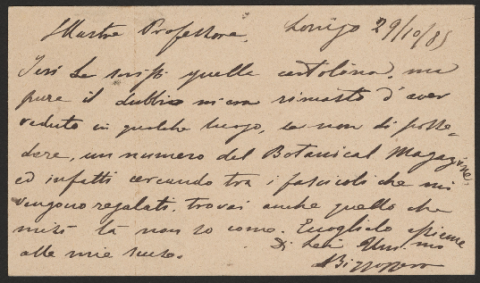 Illustre Professore, Lonigo 29/10/85
Ieri Le scrissi quella cartolina, ma
pure il dubbio m'era rimasto d'aver
veduto in qualche luogo, se non di posse-
dere, un numero del Botanical Magazine,
ed infatti cercando tra i fascicoli che mi
vengono regalati, trovai anche quello che
misi là non so come. Lo accolga insieme
alle mie scuse. Di Lei Um mo
ABizzozero